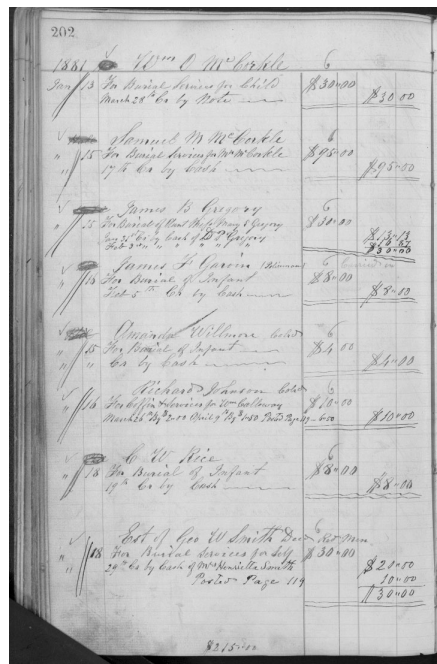 202
1881 Wm O McCorkle 6
Jan 13 For Burial Services for Child $30.00
March 28th Cr by Note $30.00
Samuel M McCorkle 6
" 15 For Burial Services for Mr McCorkle $95.00
17th Cr by Cash $95.00
James B Gregory 6
" 15 For Burial of $30.00
Cr by Cash of Gregory $13.13
$30.00
James F Garvin 6
" 15 For Burial of Infant $8.00
Feb 5th Cr by Cash $8.00
Amanda Willmore Cold 6
" 15 For Burial of Infant $4.00
" " Cr by Cash $4.00
Richard Johnson Cold 6
" 16 For Coffin & Services for Wm Calloway $10.00
March 26th By $2.00 April 9th By 1.50 Posted Page $10.00
C W Rice 6
" 18 For Burial of Infant $8.00
19th Cr by Cash $8.00
Est of Geo W Smith Dec 6
" 18 For Burial Services for Self $30.00
29th Cr by Cash of Mrs Henrietta Smith $20.00
Posted Page 119 10.00
$30.00
$215.00